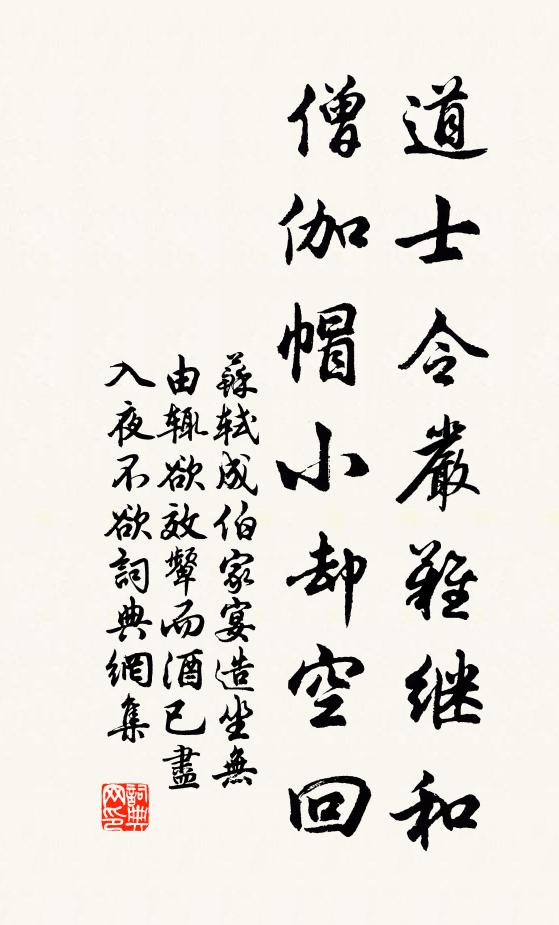 道士令嚴難继和
僧伽帽小却空回
蘇軾成伯家宴造坐無
由輒欲效顰而酒已盡
入夜不欲詞典網集
詞典
网印